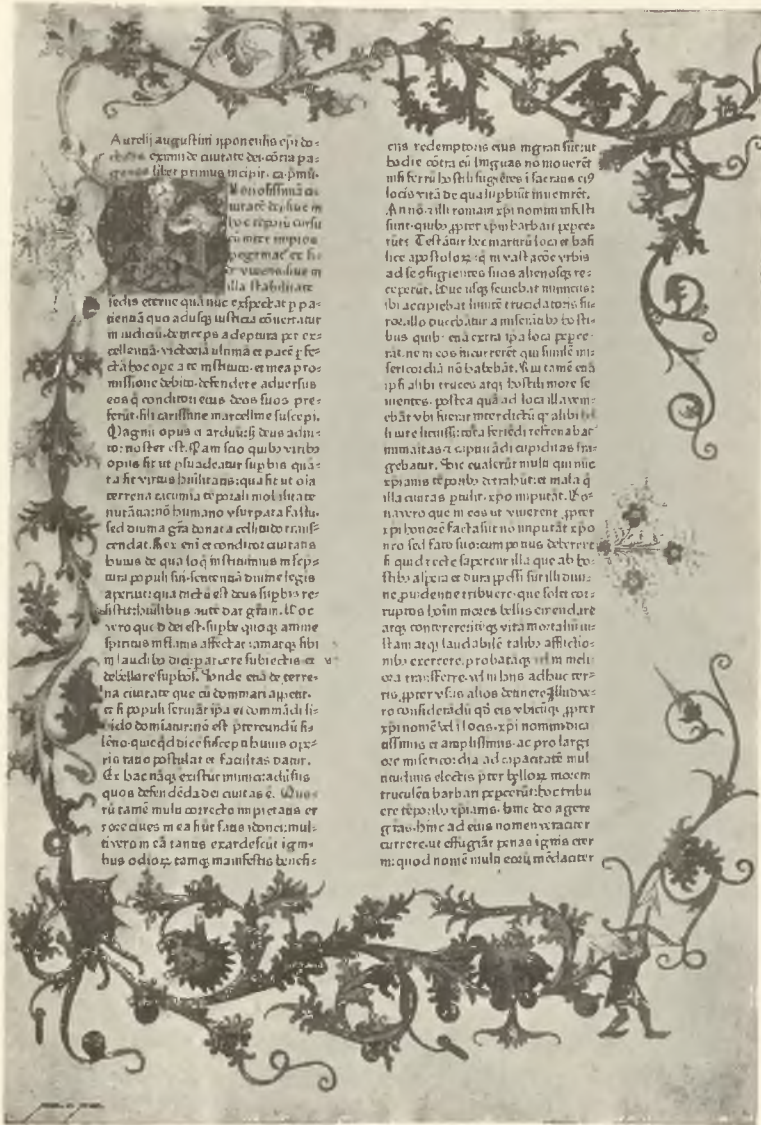 Aurelij augustini yponensis ep̄i do-
eximij de ciuitate dei· cōtra pa-
liber primus incipit· ca· p̄mū·
ciuitatē dei siue in
hoc tēporū cursu
cū inter impios
fide viuens· siue in
illa stabilitate
sedis eterne quā nūc exspectat p̱ pa-
tientiā quo adusq̨ iusticia cōuertatur
in iudiciū· deinceps adeptura per ex-
cellentiā· victoriā ultimā et pacē p̱fe-
ctā hoc ope̱ a te instituto· et mea pro-
missione debito· defendere aduersus
eos q̇ conditori eius deos suos pre-
ferūt· fili carissime marcelline suscepi·
Magnū opus et arduū: sʒ deus adiu-
tor noster est· Nam scio quibꝯ viribꝯ
opus sit ut p̱suadeatur sup̱bis quā-
ta sit virtus hūilitatis: qua fit ut oīa
terrena cacumia tēporali mobilitate
nutātia: nō humano vsurpata fastu·
sed diuina gr̄a donata celsitudo trans-
cendat· Rex eni et conditor ciuitatis
huius de qua loq̇ instituimus in scp̄-
tura populi sui· sententiā diuine legis
aperuit: qua dictū est deus sup̱bis re-
sistit: hūilibus autē dat gr̄am· Hoc
vero quod dei est· sup̱be quoq̨ anime
spiritus inflatus affectat: amatq̨ sibi
in laudibꝯ dici: parcere subiectis et
debellare sup̱bos· Vnde etiā de terre-
na ciuitate que cū dominari appetit·
et si populi seruiāt ipa et dominādi li-
bido dominatur: nō est pretereundū si-
lētio· quicq̇d dicere suscepti huius ope-
ris ratio postulat et facultas datur·
Ex hac nāq̨ existūt inimici: aduersus
quos defendēda dei ciuitas ē·
rū tamē multi correcto impietatis er
rore ciues in ea fiūt satis idonei: mul-
ti vero in eā tantis exardescūt igni-
bus odioꝝ· tamq̨ manifestis benefi-
ciis redemptoris eius ingrati sunt: ut
hodie cōtra eū linguas nō mouerēt
nisi ferrū hostile fugiētes ī sacratis eiꝯ
locis vitā de qua sup̱biūt inuenirēt·
An nō ⁊ illi romani xp̄i nomini infesti
sunt· quibꝯ p̱pter xp̄m barbari peperce-
rūt· Testātur hec martirū loca et basi
lice apostoloꝝ· q̇ in vastacōe vrbis
ad se cōfugientes suos alienosq̨ re-
ceperūt· Huc usq̨ seuiebat inimicus:
ibi accipiebat limitē trucidatoris fu-
ror· illo ducebātur a miserātibꝯ hosti-
bus quibꝯ etiā extra ipa loca peperce-
rāt· ne in eos incurrerēt qui similē mi-
sericordiā nō habebāt· Qui tamē etiā
ipsi alibi truces atq̨ hostili more se
uientes· postea quā ad loca illa veni-
ebāt vbi fuerat interdictū qď alibi
li iure licuisset: tota feriēdi refrenabat
immanitas ⁊ captiuādi cupiditas fra-
gebatur· Sic euaserūt multi qui nūc
xp̄ianis tēporibꝯ detrahūt: et mala q̇
illa ciuitas ptulit· xpo imputāt· Bo-
na vero que in eos ut viuerent p̱pter
xp̄i honorē facta sūt nō imputāt xp̄o
nr̄o sed fato suo: cum potius deberent
si quid recte saperent illa que ab ho-
stibꝯ aspera et dura p̱pessi sūt illi diui-
ne p̱uidentie tribuere· que solet cor-
ruptos hoīm mores bellis emendare
atq̨ conterere: itēq̨ vitā mortaliū iu-
stam atq̨ laudabilē talibꝯ afflictio-
nibꝯ exercere· probatāq̨ vel in meli
ora transferre· vel in his adhuc ter-
ris p̱pter vsus alios detinere· Illud ve-
ro considerādū qď eis vbicūq̨ p̱pter
xp̄i nomē vel ī locis· xp̄i nomini dica
tissimis et amplissimis· ac pro largi
ore misericordia ad capacitatē mul
titudinis electis p̱ter belloꝝ morem
truculēti barbari pepercerūt: hoc tribu
ere tēporibꝯ xp̄ianis· hinc deo agere
gr̄as· hinc ad eius nomen veraciter
currere· ut effugiāt penas ignis eter
ni: quod nomē multi eorū mēdaciter